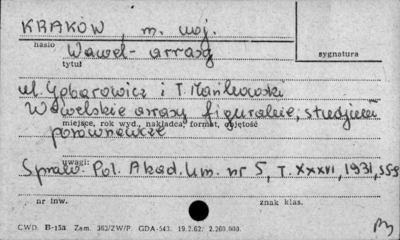 KRAKÓW, m. woj.
hasło
Wawel - arrasy
sygnatura
tytuł
M. Gębarowicz i T. Mańkowski
Wawelskie arrasy figuralne, studjum
miejsce, rok wyd., nakładca, format, objętość
porównawcze
uwagi:
Spraw. Pol. Akad. Um. nr 5, T. XXXVI, 1931, s.
nr inw.
znak klas.
CWD. B-153 Zam. 362/ZW/P. GDA-543. 19.2.62. 2.260.000.